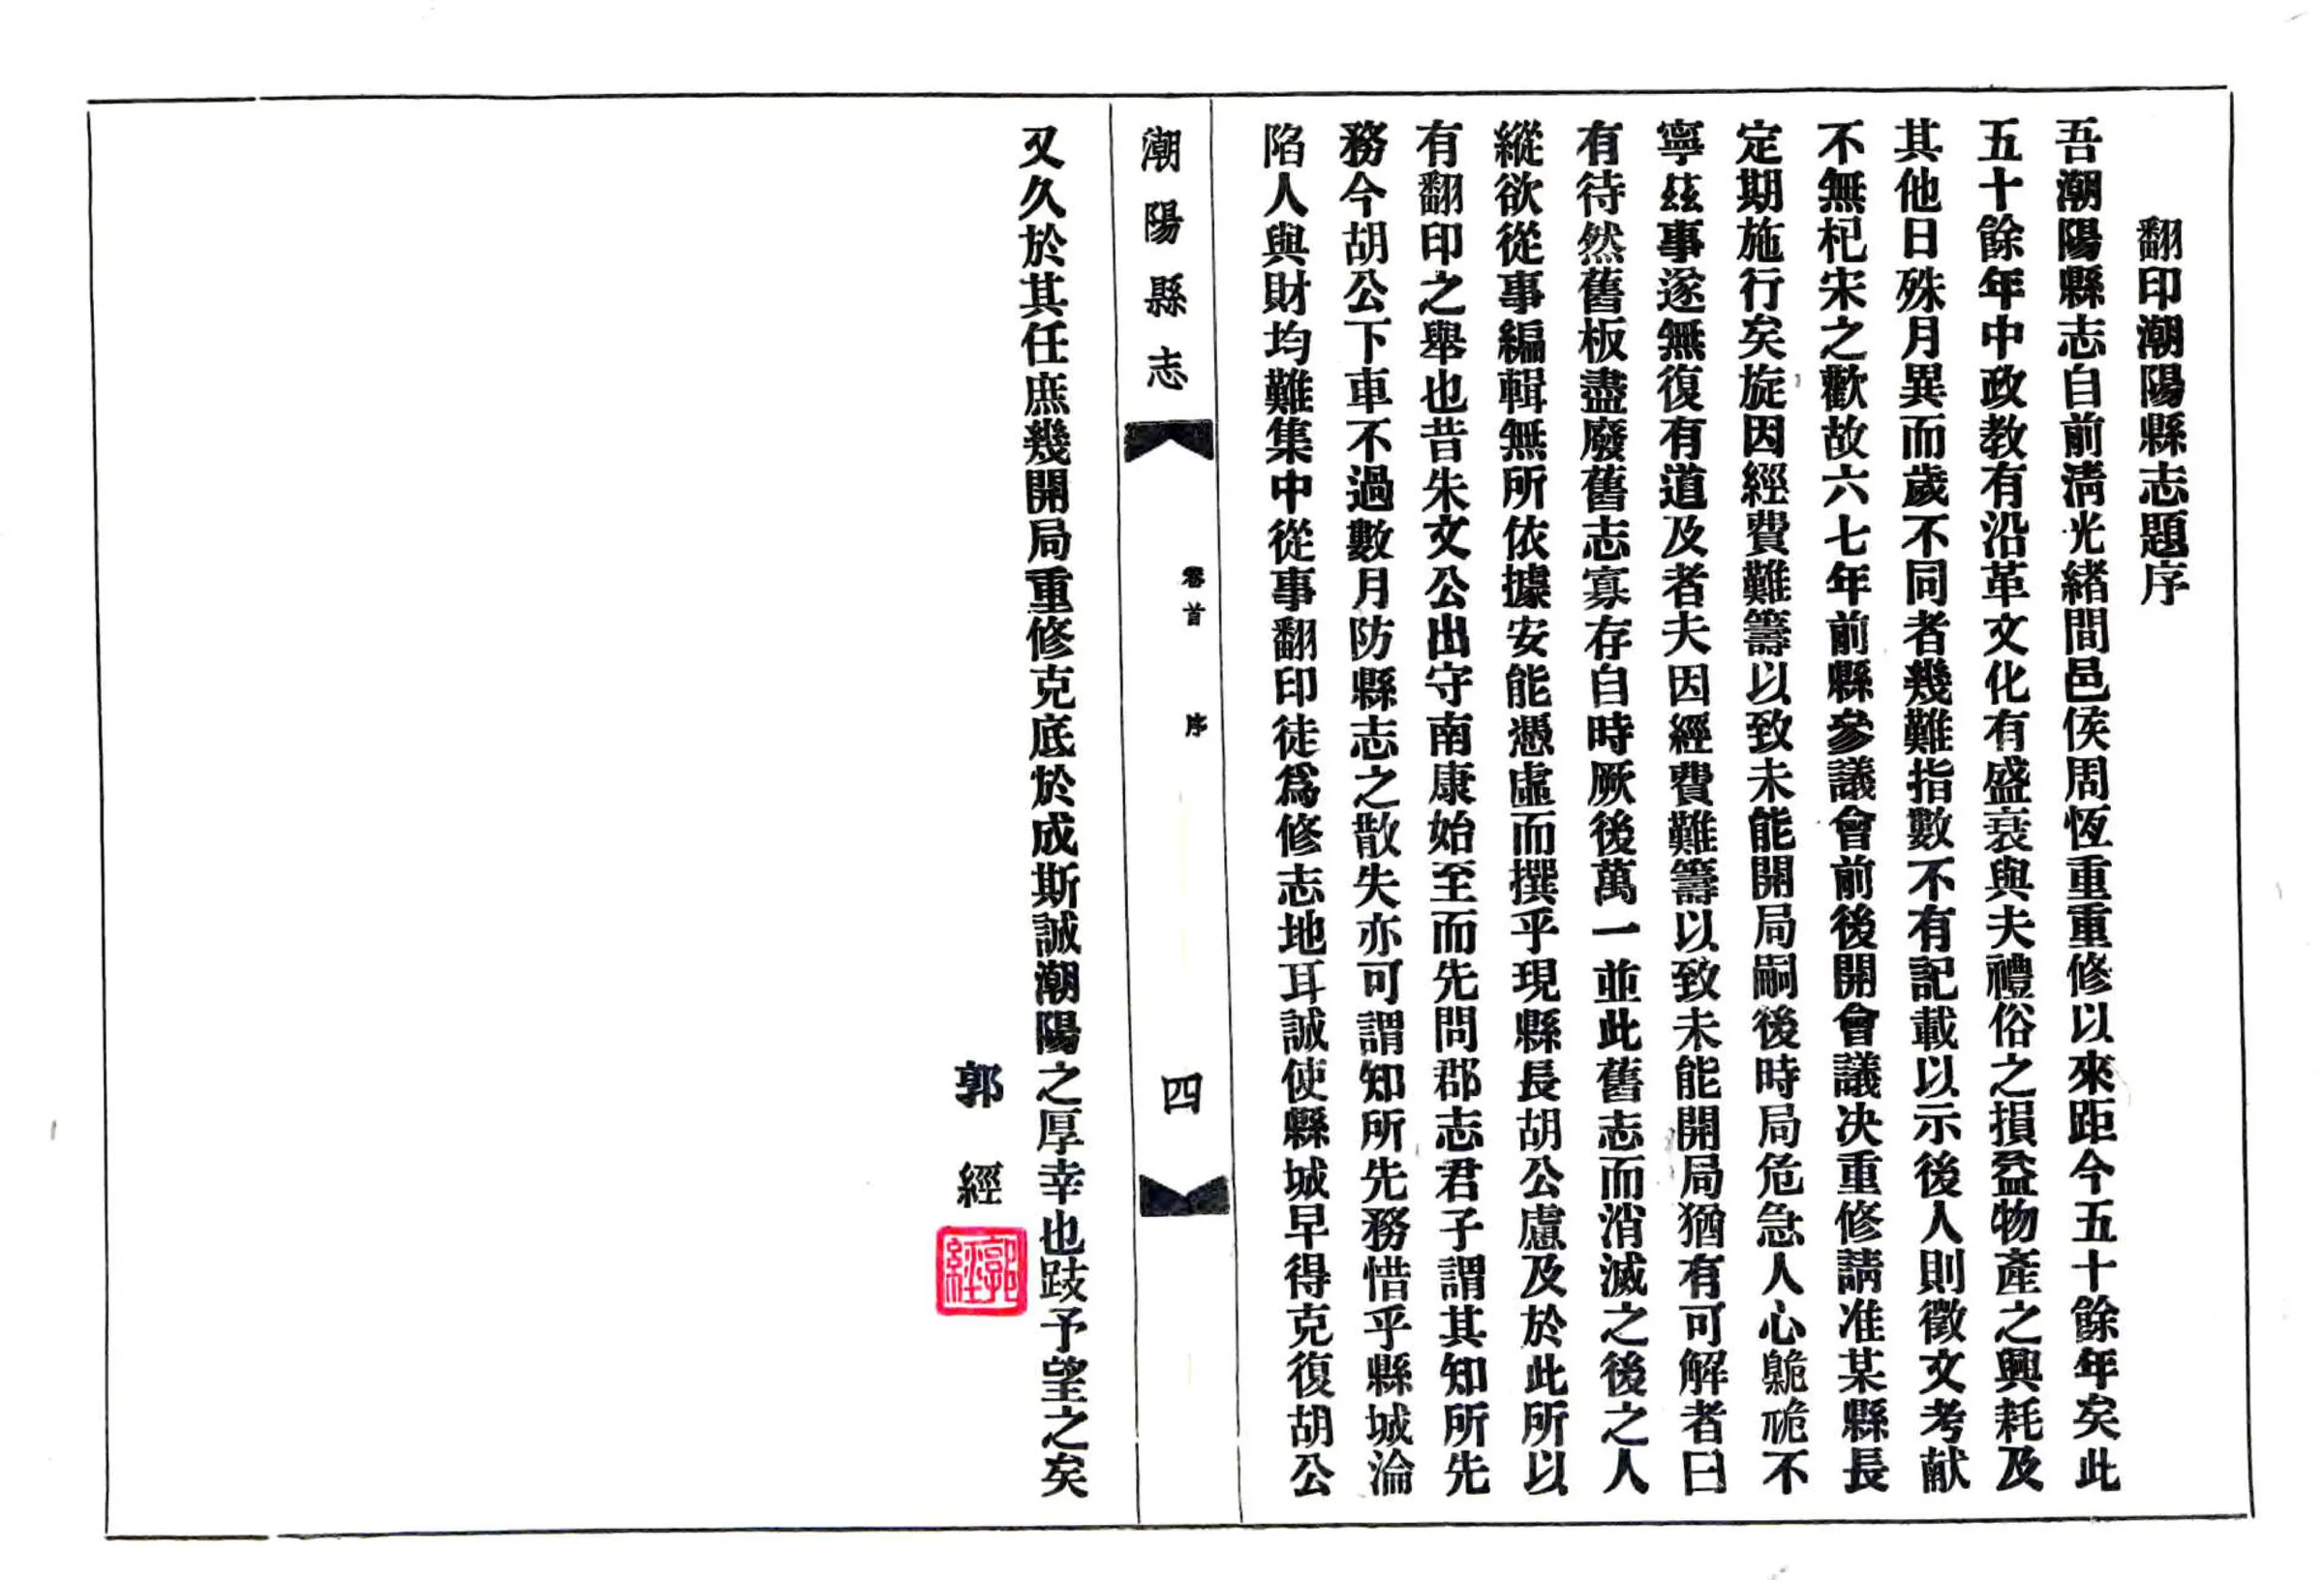 翻印潮陽縣志題序
吾潮陽縣志自前淸光緖間邑侯周恆重重修以來距今五十餘年矣此
五十餘年中政教有沿革文化有盛衰與夫禮俗之損益物產之興耗及
其他日殊月異而歲不同者幾難指數不有記載以示後人則徵文考献
不無杞宋之歎故六七年前縣參議會前後開會議決重修請准某縣長
定期施行矣旋因經費難籌以致未能開局嗣後時局危急人心臲卼不
寧茲事遂無復有道及者夫因經費難籌以致未能開局猶有可解者曰
有待然舊板盡廢舊志寡存自時厥後萬一並此舊志而消滅之後之人
縱欲從事編輯無所依據安能憑虛而撰乎現縣長胡公慮及於此所以
有翻印之舉也昔朱文公出守南康始至而先問郡志君子謂其知所先
務今胡公下車不過數月防縣志之散失亦可謂知所先務惜乎縣城淪
陷人與財均難集中從事翻印徒爲修志地耳誠使縣城早得克復胡公
潮陽縣志
卷首 序
四
又久於其任庶幾開局重修克底於成斯誠潮陽之厚幸也跂予望之矣
郭 經
郭經